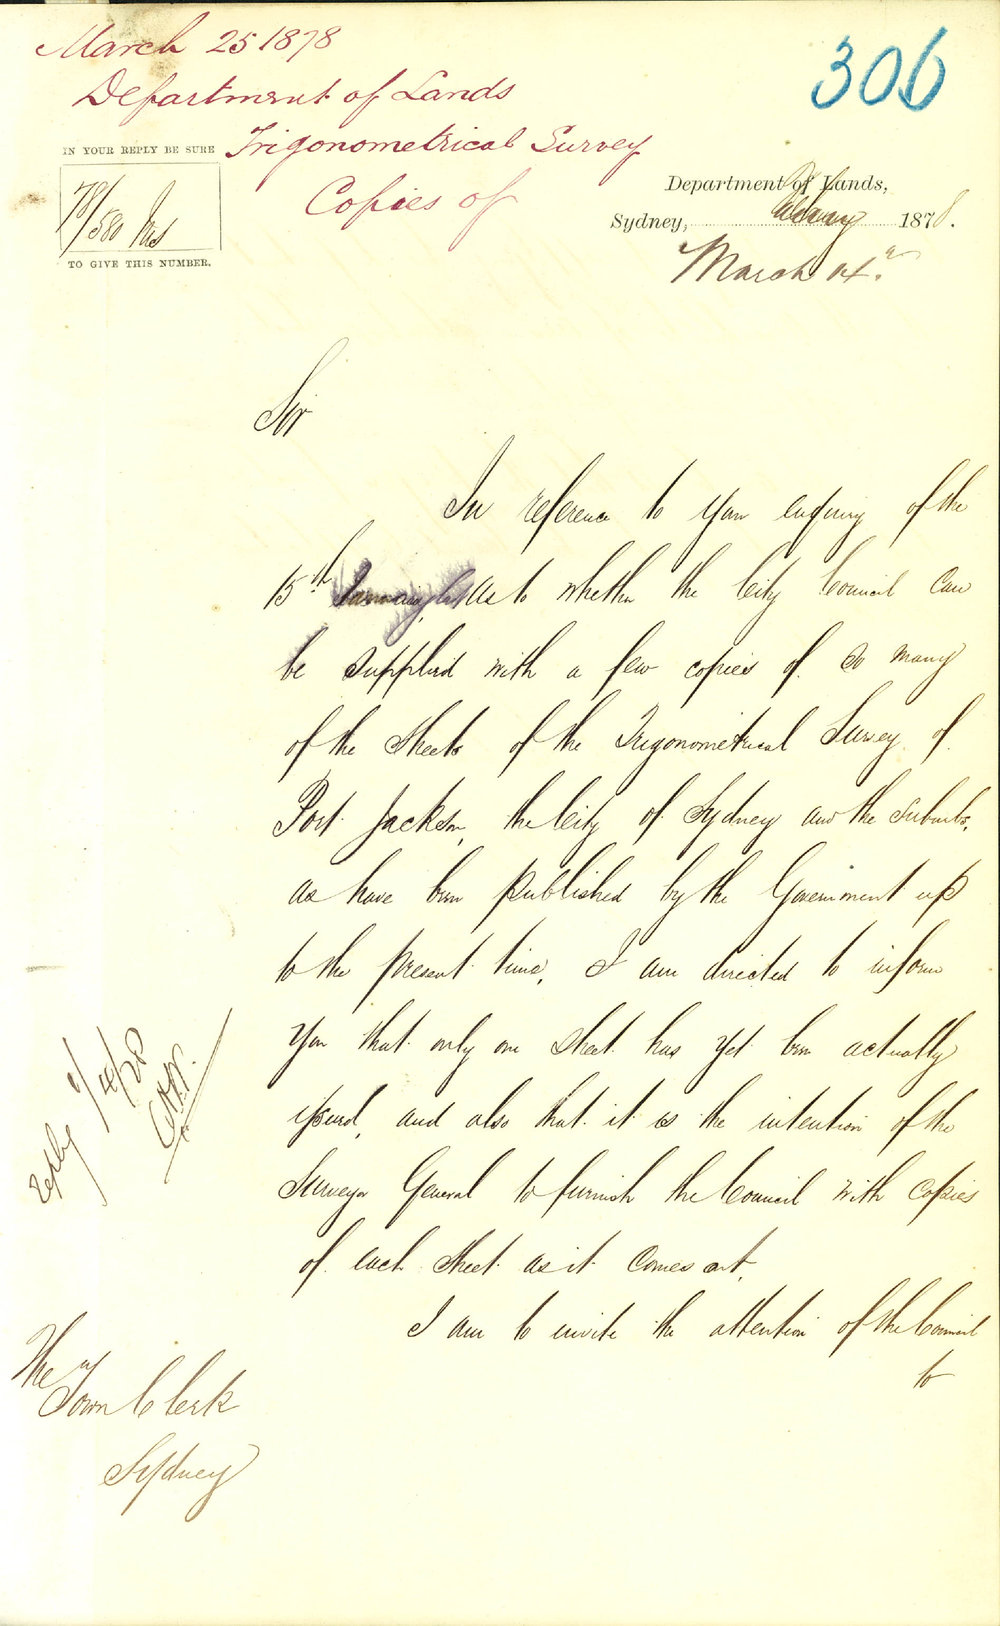 March 25 1878
306
Department of Lands
Trigonometrical Survey
Copies of
IN YOUR REPLY BE SURE
78/580 Mis
TO GIVE THIS NUMBER.
Department of Lands,
Sydney, 1878.
March 14th
Sir
In reference to your enquiry of the
15th January last as to whether the City Council can
be supplied with a few copies of so many
of the Sheets of the Trigonometrical Survey of
Port Jackson, the City of Sydney and the suburbs,
as have been published by the Government up
to the present time, I am directed to inform
you that only one sheet has yet been actually
issued, and also that it is the intention of the
Surveyor General to furnish the Council with copies
of each sheet as it comes out.
I am to invite the attention of the Council
to
reply
The
Town Clerk
Sydney